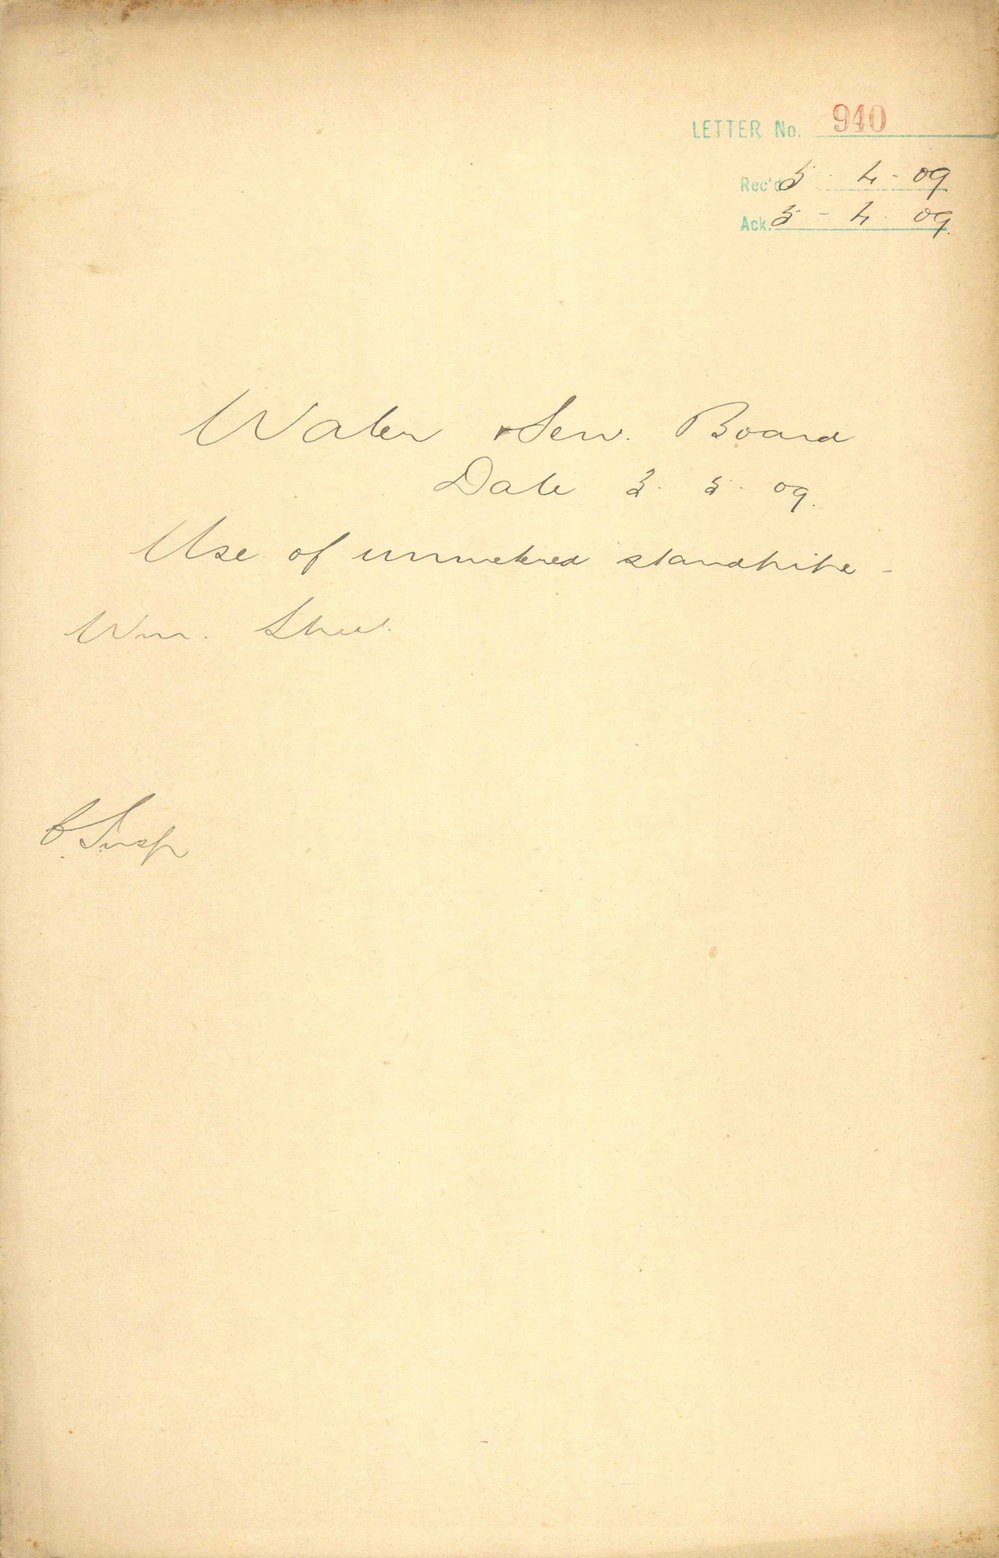 LETTER No. 940
Rec'd 5. 4. 09
Ack. 5 - 4. 09.
Water & Sew. Board
Date 3. 5. 09.
Use of unmetered standpipe -
Wm. Street.
C. Insp